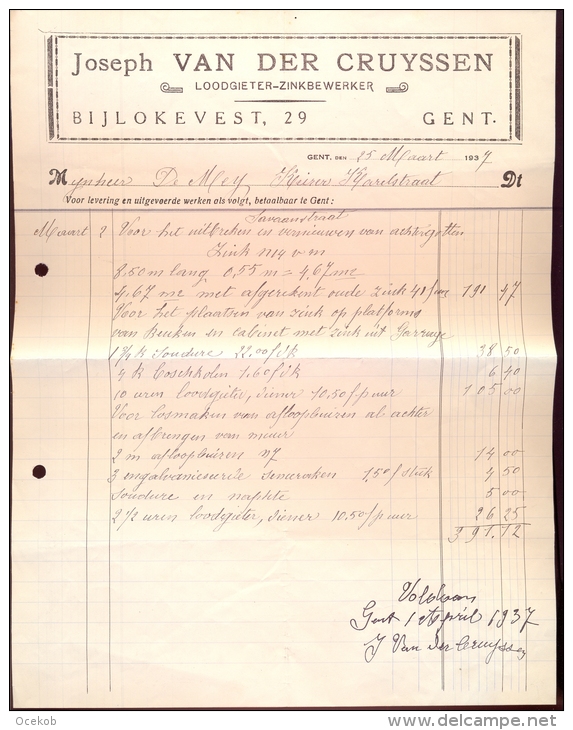 Joseph VAN DER CRUYSSEN
LOODGIETER-ZINKBEWERKER
BIJLOKEVEST, 29 GENT.
GENT, DEN 25 Maart 1937
Mynheer De Mey Keizer Karelstraat Dt
(Voor levering en uitgevoerde werken als volgt, betaalbaar te Gent:
Savaanstraat
Maart 2 Voor het uitbreken en vernieuwen van achtergoten
Zink n 14 v m
8.50 m lang 0,55 m = 4,67 m2
4,67 m2 met afgerekent oude zink 41 f m2 191 47
Voor het plaatsen van zink op platforms
van keuken en cabinet met zink uit Garruge
1 3/4 k Soudure 22.00 f d k 38 50
4 k Coschkolen 1.60 f d k 6 40
10 uren loodgieter, diener 10.50 f p uur 105 00
Voor losmaken van afloopbuizen al achter
en afbrengen van muur
2 m afloopbuizen n7 14 00
3 engalvaniseurde 1,50 f stuk 4 50
Soudure en naphte 5 00
2 1/2 uren loodgieter, diener 10.50 f p uur 26 25
391.12
Voldaan
Gent 1 April 1937
J Van der Cruyssen
Ocekob
www.delcampe.net